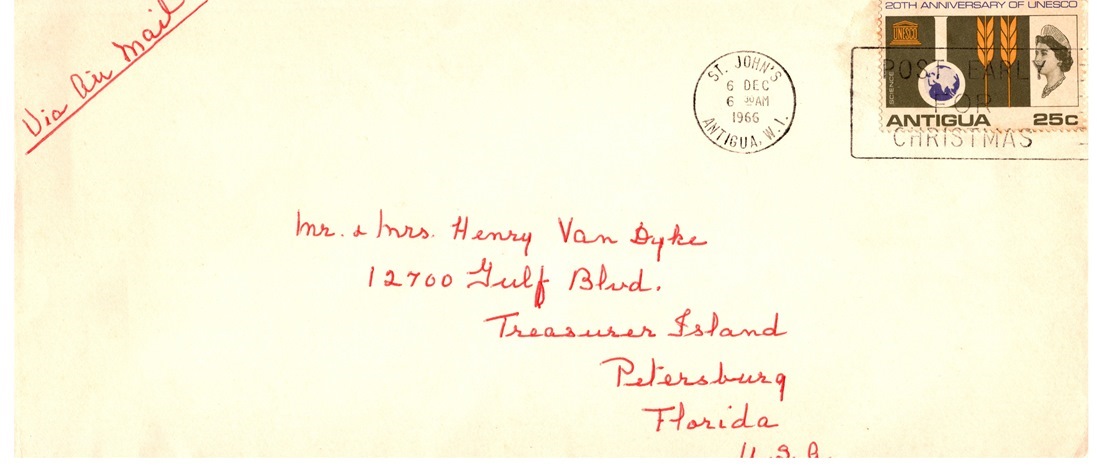 Via Air Mail
20TH ANNIVERSARY OF UNESCO
UNESCO
SCIENCE
ANTIGUA 25c
ST. JOHN'S
6 DEC
6 30AM
1966
ANTIGUA, W.I.
POST EARLY
FOR
CHRISTMAS
Mr. & Mrs. Henry Van Dyke
12700 Gulf Blvd.
Treasurer Island
Petersburg
Florida
U.S.A.